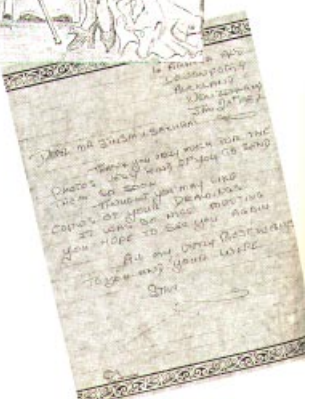 DEVONPORT
AUCKLAND
NEW ZEALAND
DEAR MR
THANK YOU VERY MUCH FOR THE
PHOTOS. VERY KIND OF YOU TO SEND
THEM SO SOON.
THOUGHT YOU MAY LIKE
COPIES OF YOUR DRAWINGS
IT WAS SO NICE MEETING
YOU - HOPE TO SEE YOU AGAIN
ALL MY VERY BEST WISHES
TO YOU AND YOUR WIFE